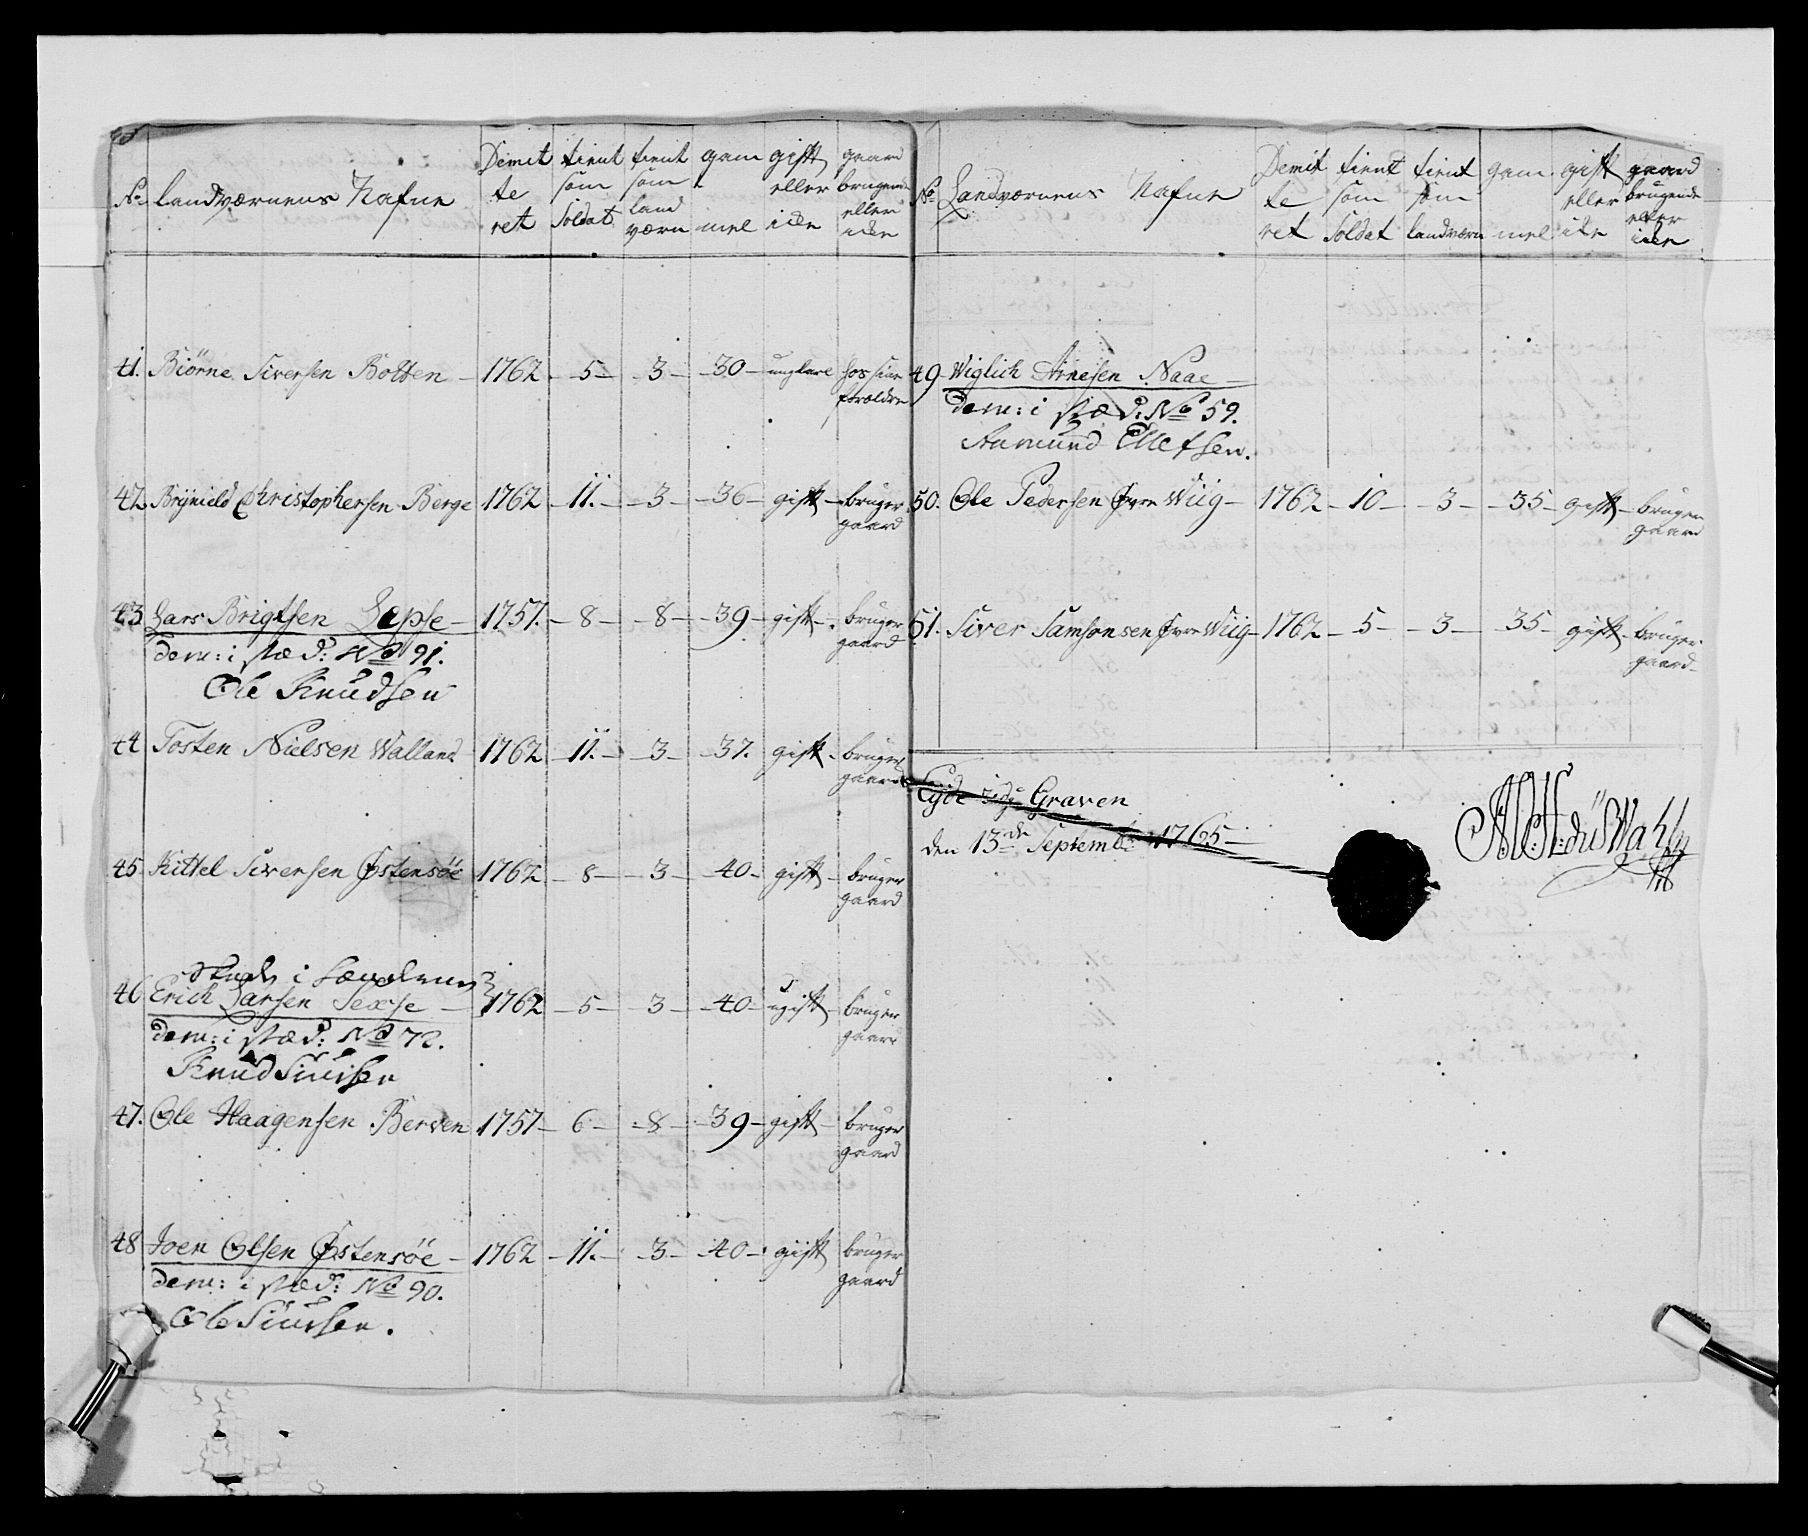 No Landværnens Nafne Demitteret tient som Soldat tient som land værn gammel gift eller icke gaard brugende eller icke
41. Biörne Siversen Botten – 1762 – 5 – 3 – 30 – ungkarl hos sine
forældre
42. Brÿnield Christophersen Berge 1762 – 11. – 3 – 36 – gift – bruger
gaard
43 Lars Brigtsen Lopse – 1757. – 8 – 8 – 39 – gift – bruger
gaard
dem: i stæd: No 91.
Ole Knudsen
44 Tosten Nielsen Walland 1762 – 11. – 3 – 37. gift – bruger
gaard
45 Kittel Siversen Østensöe 1762 – 8 – 3 – 40 – gift – bruger
gaard
46 Erich Larsen Sexse – 1762 – 5 – 3 – 40 – ugift – bruger
gaard
dem: i stæd: No 72.
Knud Siursen
47. Ole Haagensen Berven 1757 – 6 – 8 – 39 – gift – bruger
gaard
48 Joen Olsen Østensöe – 1762 – 11. – 3 – 40 – gift bruger
gaard
dem: i stæd: No 90.
Ole Siursen.
No Landværnens Nafne Demitteret tient som Soldat tient som landværn gammel gift eller icke gaard brugende eller icken
49 Wiglich Arnesen Naae –
dem: i stæd: No 59.
Aamund Ellefsen.
50. Ole Pedersen Øvre Wiig – 1762 – 10 – 3 – 35 – gift – bruger
gaard
51. Siver Samsonsen Øvre Wiig – 1762 – 5 – 3 – 35 – gift – bruger
gaard
Eyde Graven
den 13de Septembr 1765 –